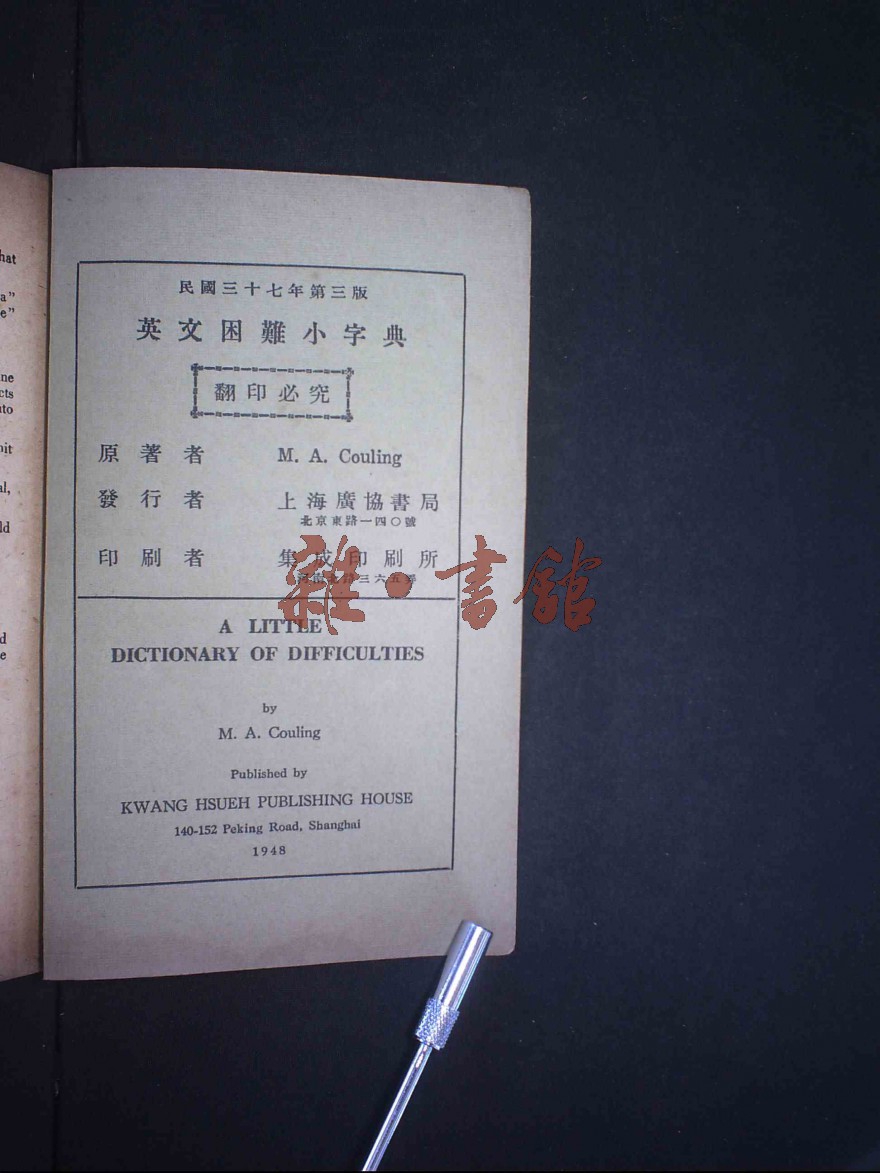 hat
a"
e"
ne
cts
nto
oit
al,
ld
d
e
民國三十七年第三版
英文困難小字典
翻印必究
原著者 M. A. Couling
發行者 上海廣協書局
北京東路一四〇號
印刷者 集成印刷所
三六五
雜·書館
A LITTLE
DICTIONARY OF DIFFICULTIES
by
M. A. Couling
Published by
KWANG HSUEH PUBLISHING HOUSE
140-152 Peking Road, Shanghai
1948